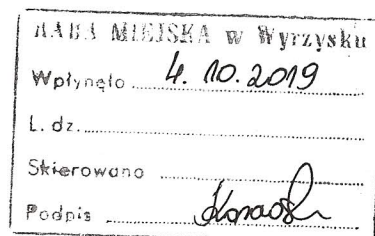 RADA MIEJSKA w Wyrzysku
Wpłynęło 4. 10. 2019
L. dz.
Skierowano
Podpis